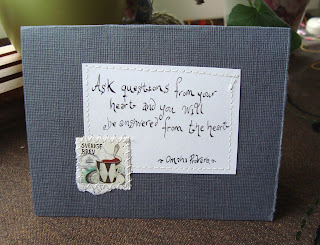 Ask questions from your
heart and you will
be answered from the heart
~ Omaha
SVERIGE
BREV